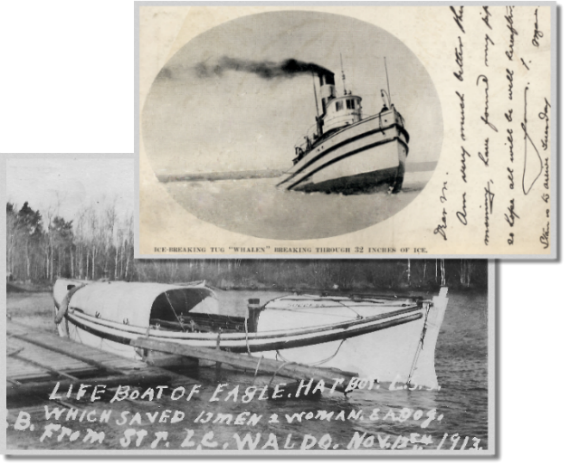 ICE-BREAKING TUG "WHALEN" BREAKING THROUGH 32 INCHES OF ICE.
Dear M.
Am very much better this
morning, have found my pipe
so hope all will be well hereafter
LIFE BOAT OF EAGLE. HARBOR. L.S.S.
WHICH SAVED 22 MEN 2 WOMAN. & A DOG.
FROM STR. L.C. WALDO. NOV. 11TH 1913.